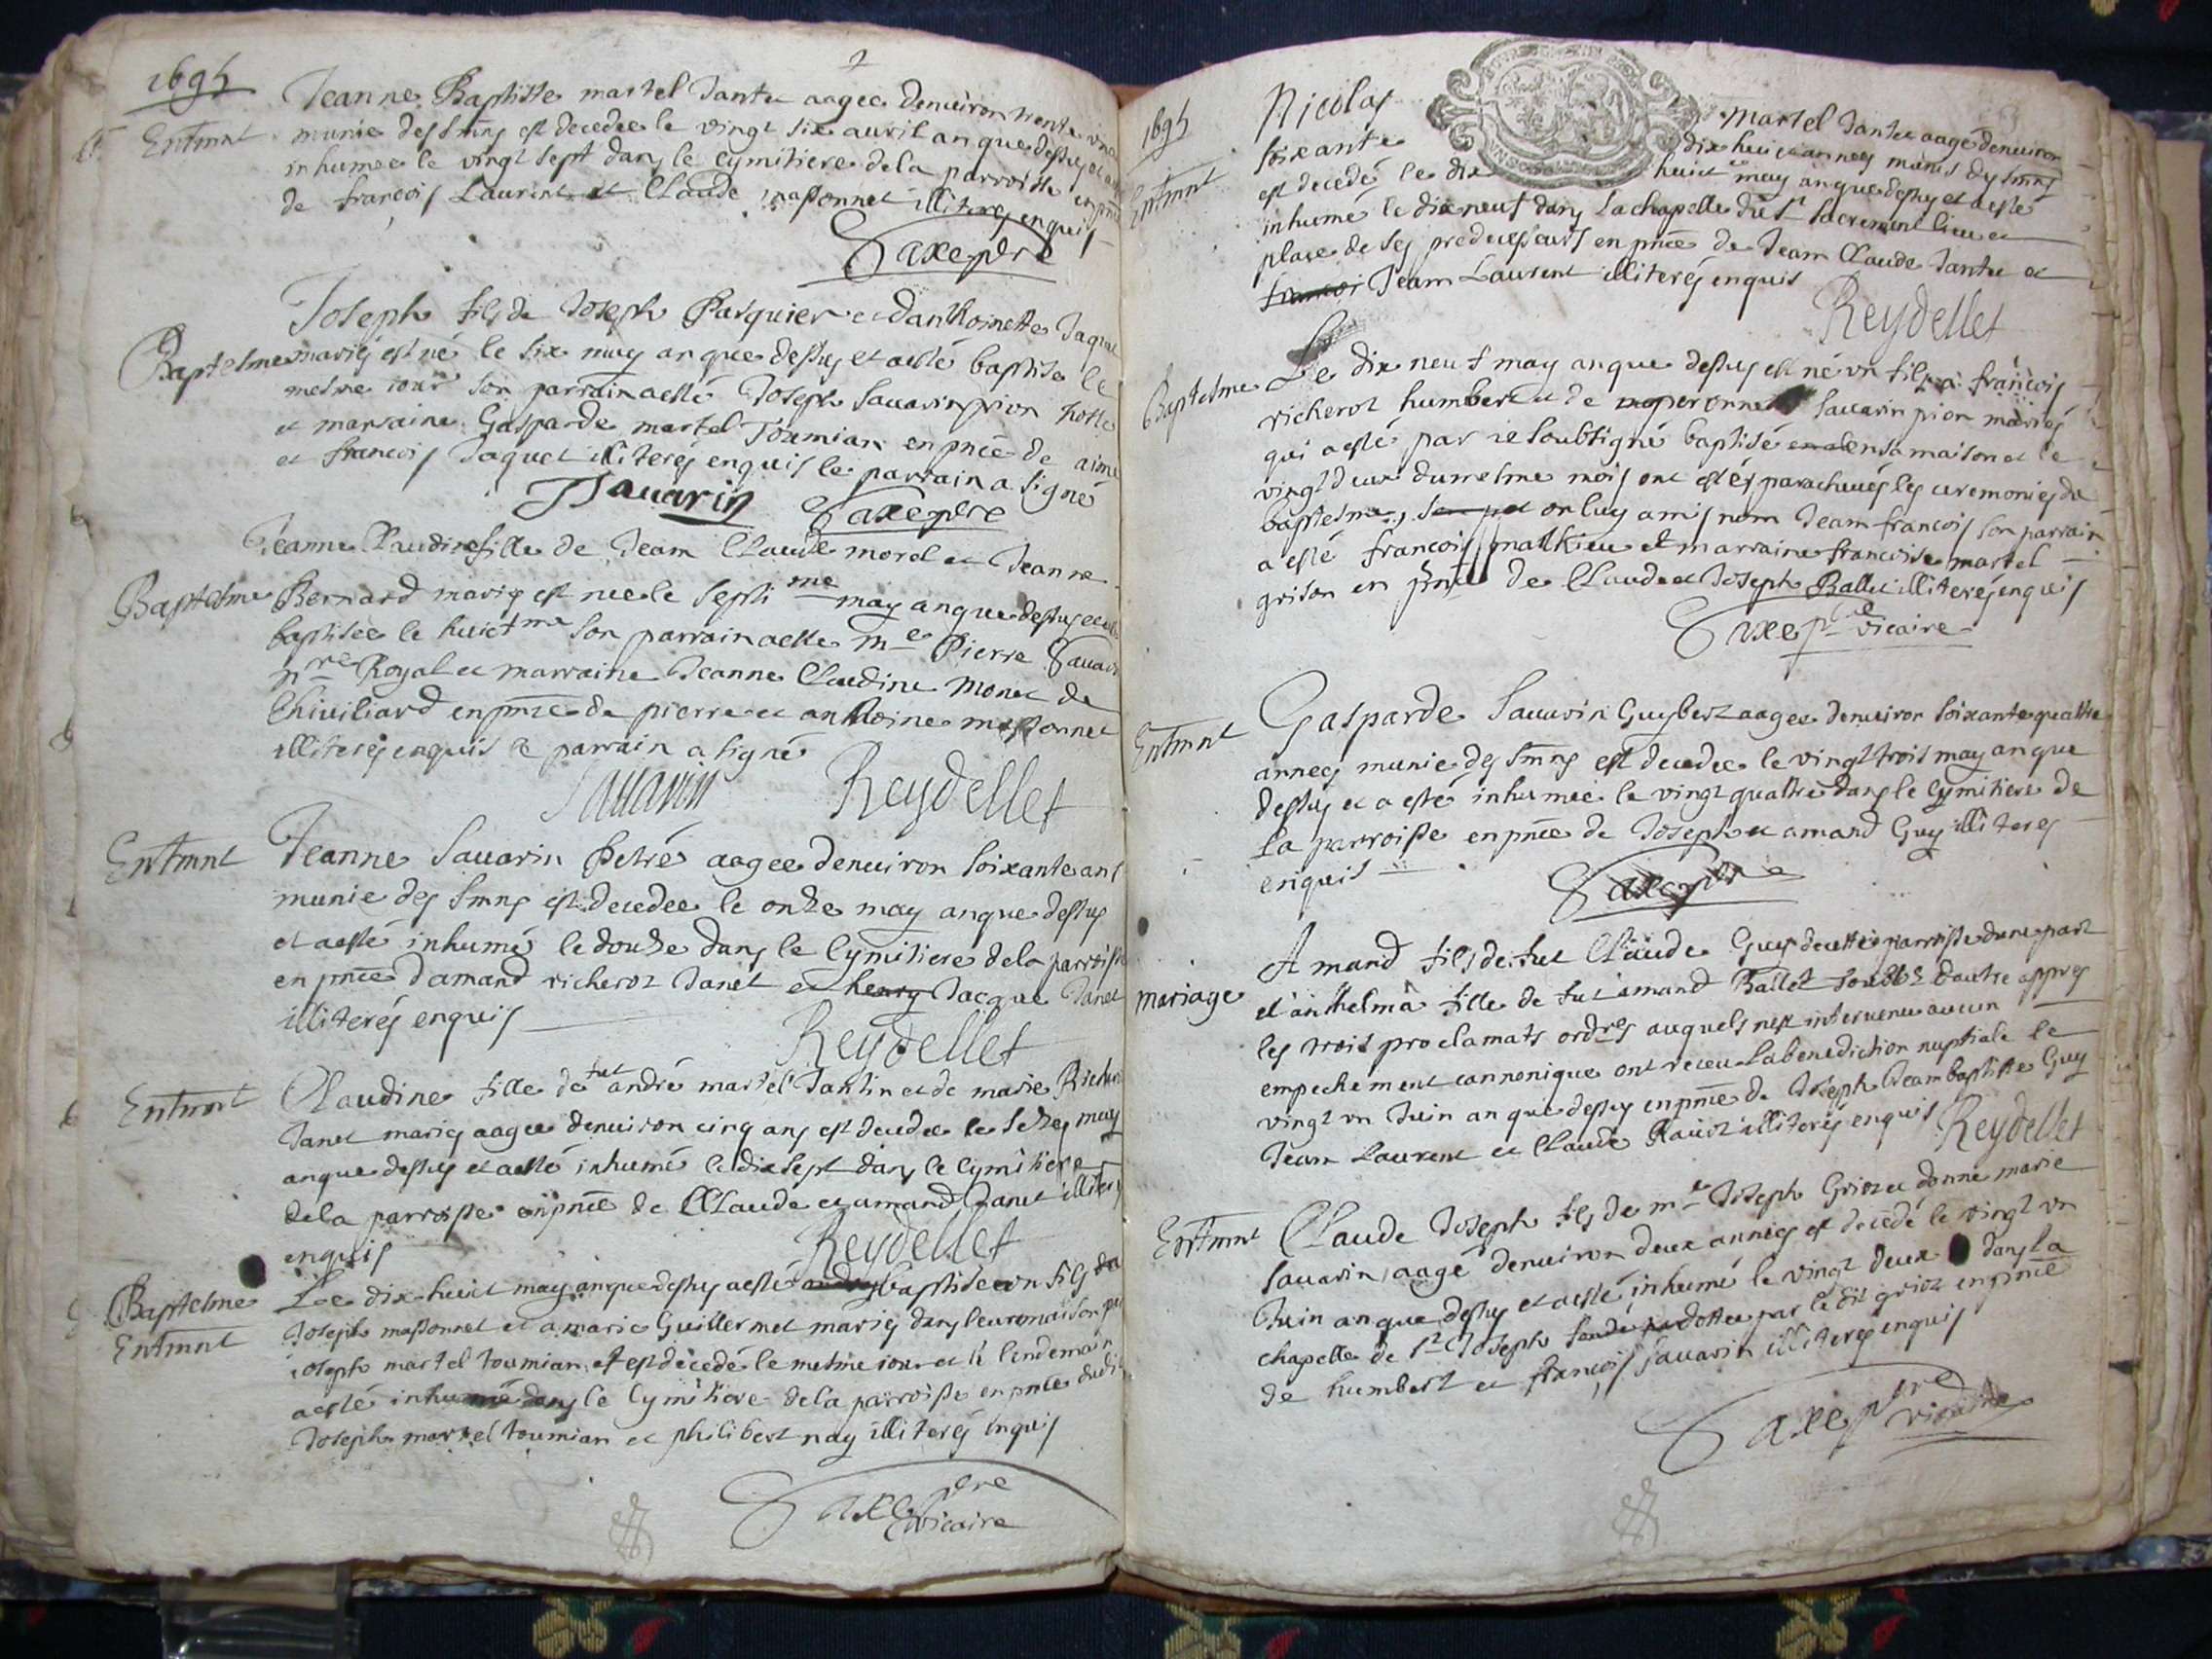 1695
2
Entmnt
Jeanne Baptiste martel Jantet aagee denuiron trente
munie des Smns est decedee le vingt six auril an que dessus et a
inhumee le vingt sept dans le cymitiere dela parroisse en pnce
de françois Laurent et Claude massonnet illiterés enquis
Saxe ptre
Baptesme
Joseph fils de Joseph Pasquier et danthoinette Jaquet
mariés est né le six may an que dessus et aesté baptisé le
mesme iour son parrain aesté Joseph Sauarin pion
et marraine Gasparde martel Toumian en pnce de aimé
et francois Jaquet illiterés enquis le parrain a signé
JSauarin Saxe ptre
Baptesme
Jeanne Claudine fille de Jean Claude morel et Jeanne
Bernard mariés est nee le septi me may an que dessus
baptisée le huict me son parrain aesté me Pierre Sauarin
Royal et marraine Jeanne Claudine Monet de
Chiuiliard en pnce de pierre et anthoine massonnet
illiterés enquis le parrain a signé
Sauarin Reydellet
Entmnt
Jeanne Sauarin Petré aagee denuiron soixante ans
munie des Smns est decedee le onze may an que dessus
et aesté inhumé le douze dans le Cymitiere dela parroisse
en pnce damand richerot Janet et henry Jacque Janet
illiterés enquis
Reydellet
Entmnt
Claudine fille de fut andré martel Jantin et de marie Richerot
Janet mariés aagee denuiron cinq ans est decedee le seize may
an que dessus et aesté inhumé le dix sept dans le Cymitiere
dela parroisse en pnce de Claude et amand Janet illiterés
enquis
Reydellet
Baptesme
Entmnt
Le dix huict may an que dessus aesté baptisé un fils de
Joseph massonnet et a marie Guillermet mariés dans leur maison par
ioseph martel toumian et est decedé le mesme iour et le lendemain
aesté inhumé dans le Cymitiere dela parroisse en pnce dudit
Joseph martel toumian et philibert nay illiterés enquis
Saxe ptre
vicaire
1695
Entmnt
Nicolas martel Jantet aagé denuiron
soixante dix huict annees munis des smns
est decedé le dix huict me may an que dessus et aesté
inhumé le dix neuf dans la chapelle du St Sacrement lieu et
place de ses predecesseurs en pnce de Jean Claude Jantet et
francois Jean Laurent illiterés enquis
Reydellet
Baptesme
Le dix neuf may an que dessus est né un fils a francois
richerot humbert et de peronne Sauarin pion mariés
qui aesté par ie soubsigné baptisé en sa maison et le
vingt deux du mesme mois ont estés paracheués les ceremonies du
baptesme, on luy a mis nom Jean francois son parrain
a esté francois mathieu et marraine francoise martel
grison en pnce de Claude et Joseph Ballet illiterés enquis
Saxe ptre vicaire
Entmnt
Gasparde Sauarin Guybert aagee denuiron soixante quattre
annees munie des Smns est decedee le vingt trois may an que
dessus et a esté inhumee le vingt quattre dans le Cymitiere de
la parroisse en pnce de Joseph et amand Guy illiteres
enquis
Saxe ptre
mariage
Amand fils de fut Claude Guy de cette parroisse dune part
et anthelma fille de fut amand Ballet dautre appres
les trois proclamats ordres auquels nest interuenu aucun
empechement cannonique ont receu la benediction nuptiale le
vingt vn Juin an que dessus en pnce de Joseph Jean baptiste Guy
Jean Laurent et Claude illiterés enquis
Reydellet
Entmnt
Claude Joseph fils de me Joseph Griot et donne marie
Sauarin aagé denuiron deux annees est decedé le vingt vn
Juin an que dessus et aesté inhumé le vingt deux dans la
chapelle de St Joseph dottee par le dit griot en pnce
de humbert et francois Sauarin illiterés enquis
Saxe ptre
vicaire